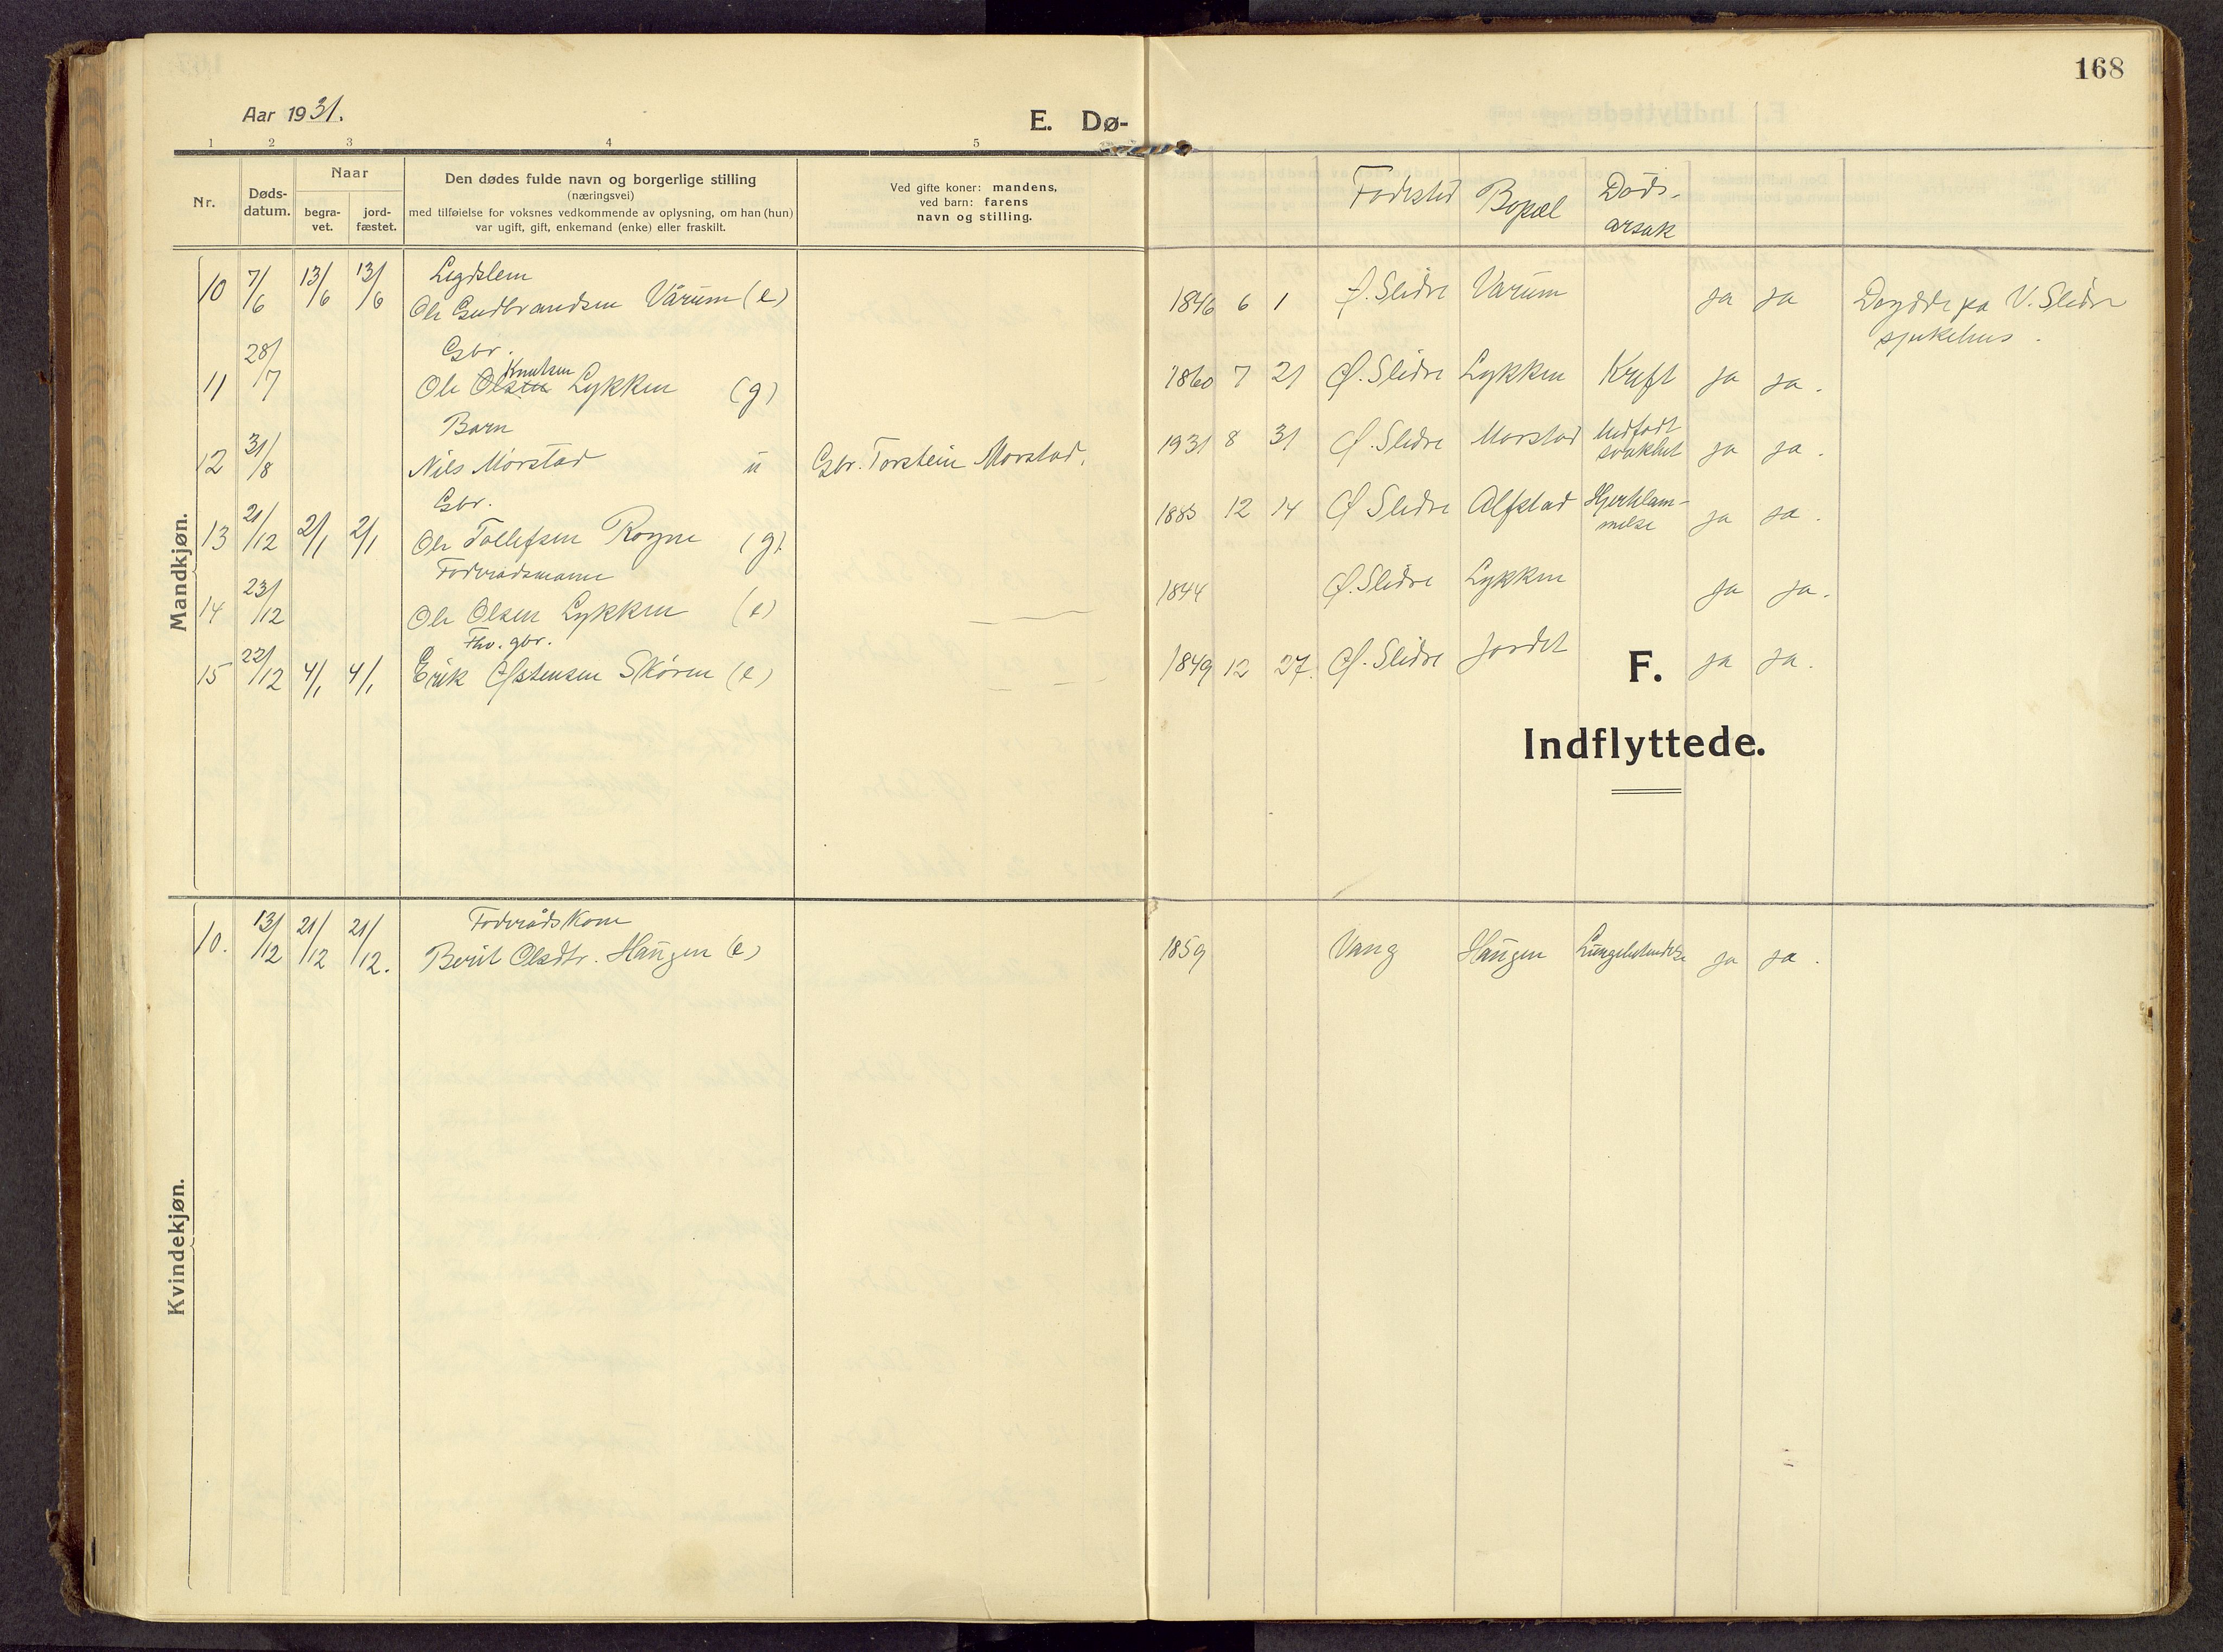 168
Aar 1931.
E. Dø-
1 2 3 4 5
Nr.
Døds-
datum.
Naar
begra-
vet.
jord-
fæstet.
Den dødes fulde navn og borgerlige stilling
(næringsvei)
med tilføielse for voksnes vedkommende av oplysning, om han (hun)
var ugift, gift, enkemand (enke) eller fraskilt.
Ved gifte koner: mandens,
ved barn: farens
navn og stilling.
Fødested Bopæl Døds-
arsak
Mandkjøn.
Legdslem
10 7/6 13/6 13/6 Ole Gudbrandsen Vårum (e) 1846 6 1 Ø. Slidre Vårum ja ja Døydde på V. Slidre
sjukehus.
Gbr.
Knutsen
11 28/7 Ole Olsen Lykken (g) 1860 7 21 Ø. Slidre Lykken Kreft ja ja.
Barn
12 31/8 Nils Mørstad u Gbr. Torstein Mørstad. 1931 8 31 Ø. Slidre Mørstad Medfødt
svakhet ja ja.
Gbr.
13 21/12 2/1 2/1 Ole Tollefsen Rogne (g). 1885 12 14 Ø Slidre Alfstad Hjertelam-
melse ja ja.
Føderådsmann
14 23/12 Ole Olsen Lykken (e) 1844 Ø. Slidre Lykken ja ja.
Fhv. gbr.
15 22/12 4/1 4/1 Erik Østensen Skøren (e) 1849 12 27. Ø. Slidre Jordet ja ja.
F.
Indflyttede.
Kvindekjøn.
Føderådskone
10. 13/12 21/12 21/12. Berit Olsdtr. Haugen (e) 1859 Vang Haugen Lungebetendelse ja ja.